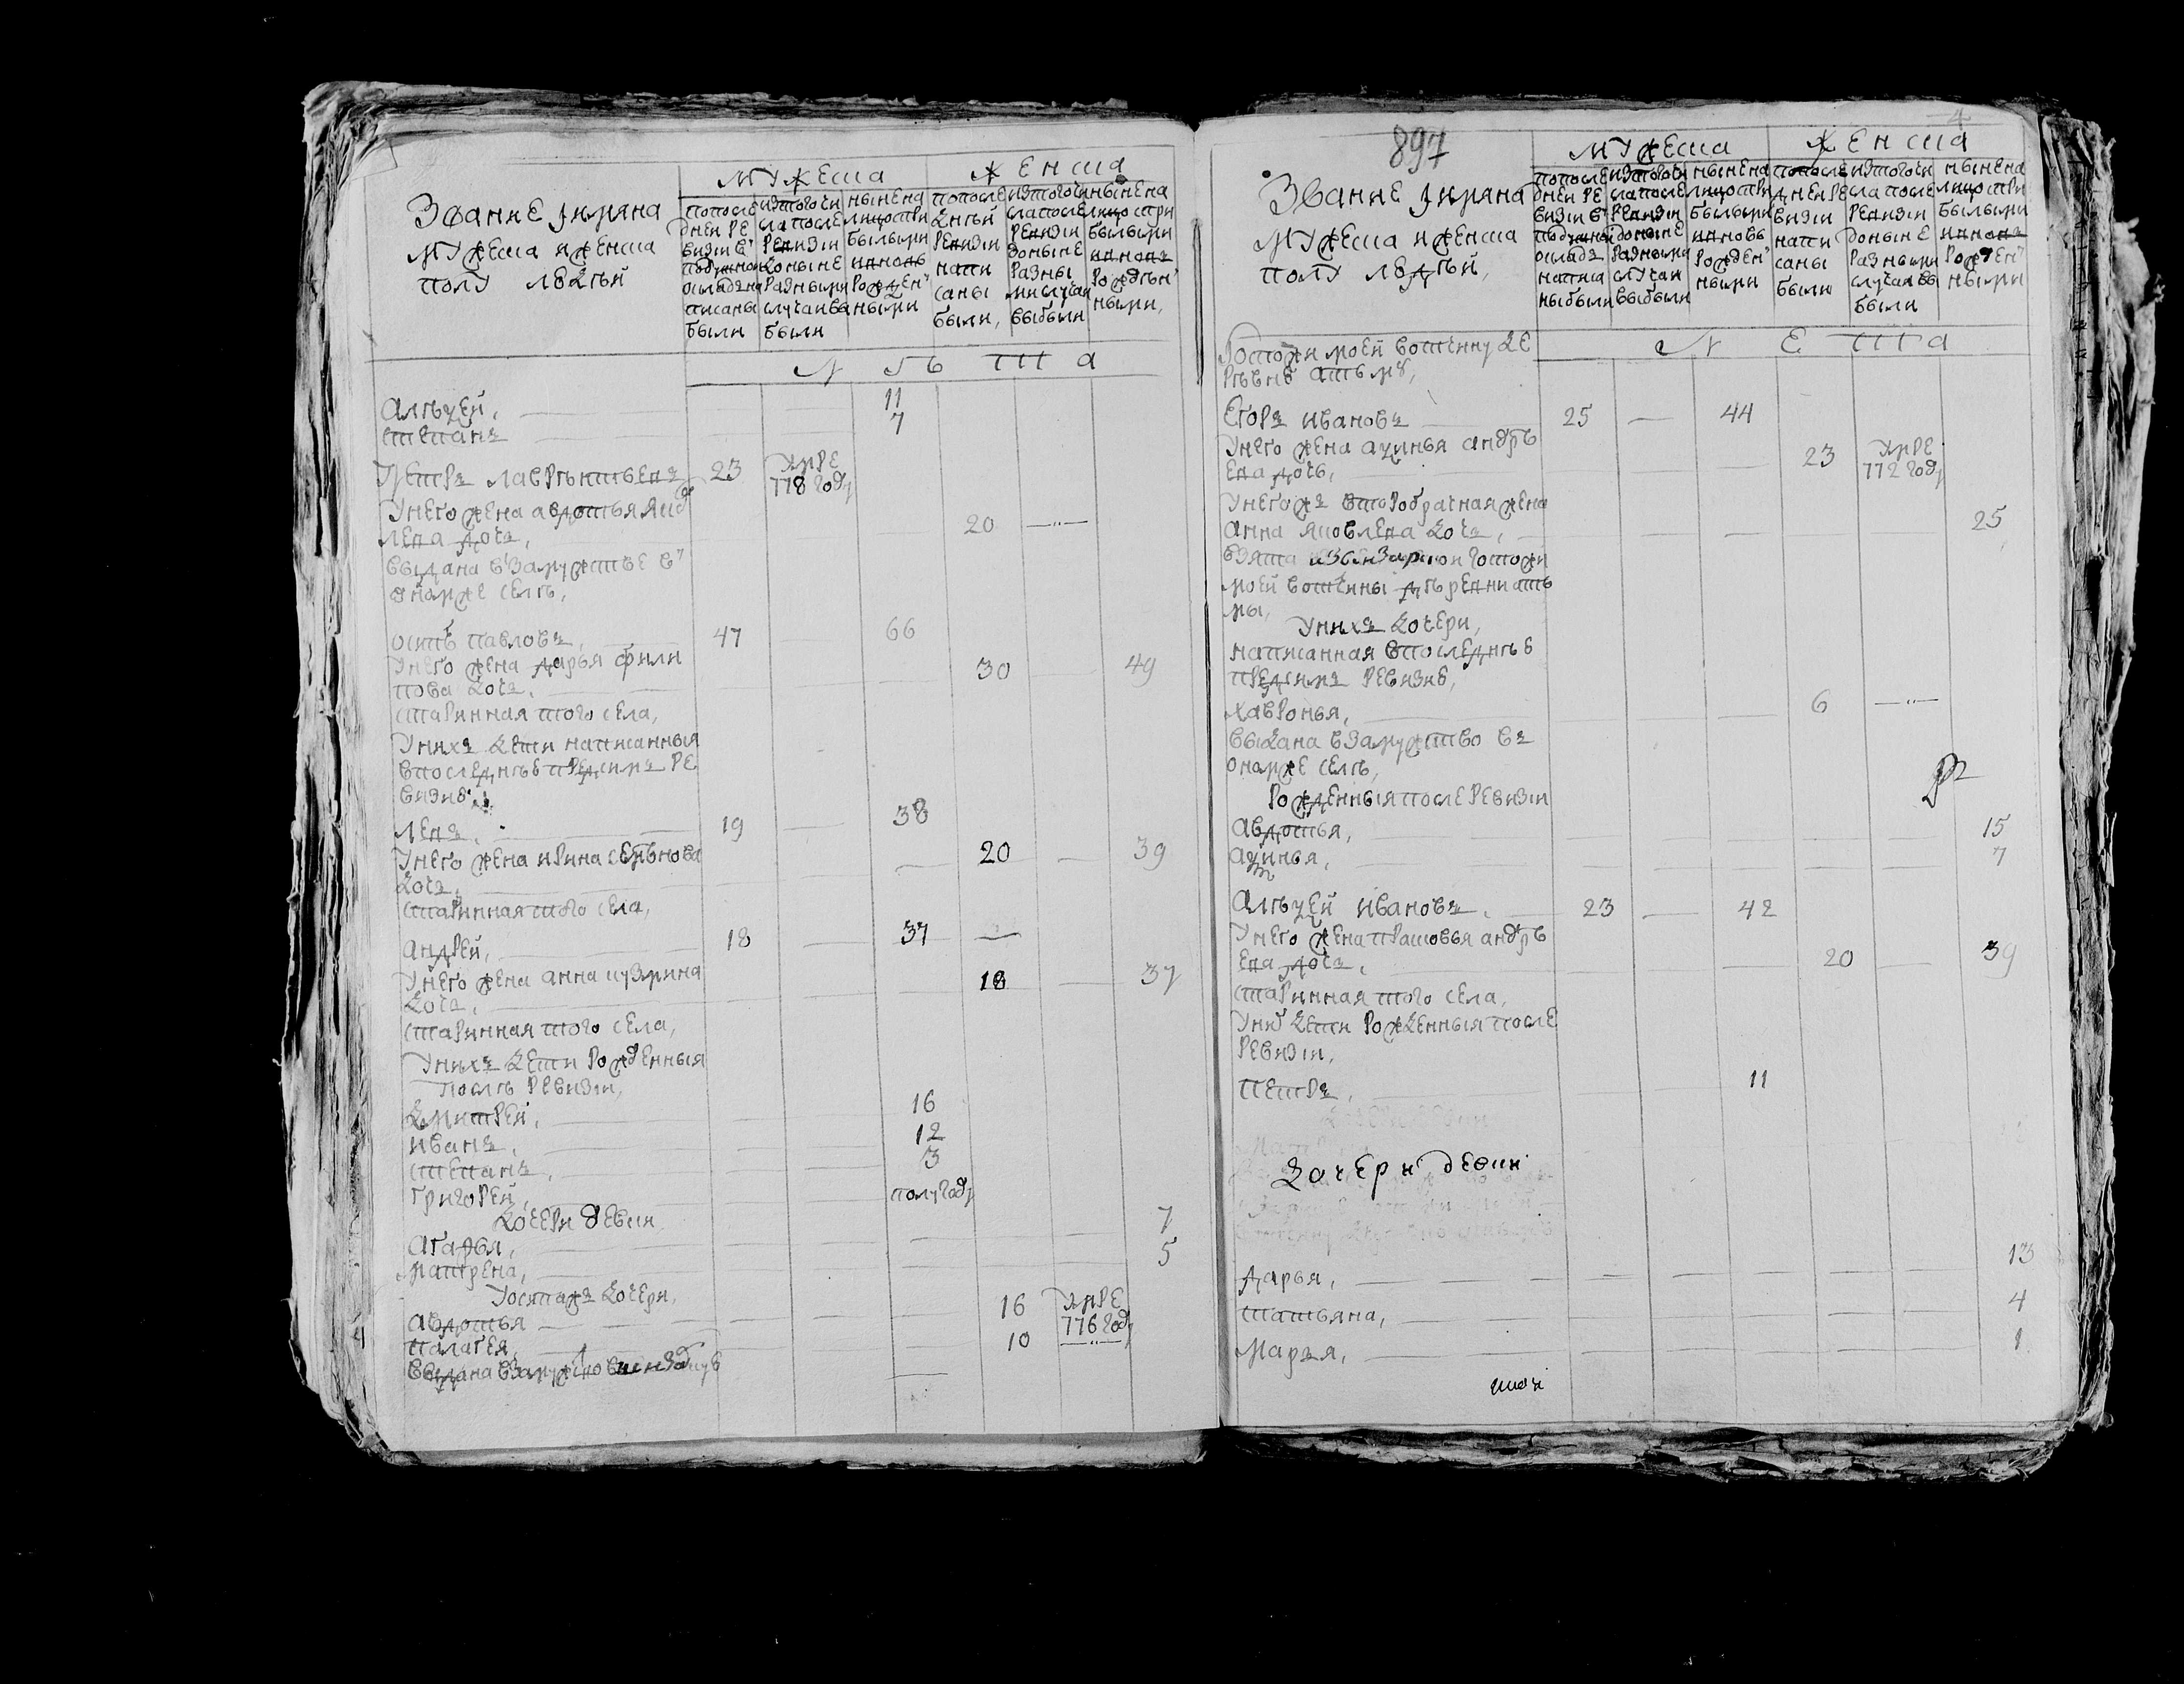 Звание имяна
мужеска и женска
полу людей
мужеска
женска
попосле
дней ре
визии в
подушной
окладъ на
писаны
были
изтого чи
сла после
ревизии
доныне
разными
случаи вы
были
ныне на
лицо при
былыми
и вновь
рожден
ными
попосле
дней
ревизии
напи
саны
были,
изтого чи
сла после
ревизии
доныне
разны
ми случаи
выбыли
ныне на
лицо при
былыми
и вновь
рожден
ными,
Л Ѣ Т А
Алѣѯей, 11
степанъ 7
Петръ лаврѣнтьевъ 23 умре 778 году
Унего жена авдотья яков
лева дочь, 20 —"—
выдана взамужстве в
ономже селѣ,
осипъ павловъ, 47 66
Унего жена дарья фили
пова дочь, 30 49
старинная того села,
Унихъ дети написанныя
впоследнѣй предсимъ ре
визиѣ
левъ, 19 38
Унего жена ирина
дочь, 20 39
старинная того села,
андрей, 18 37 —
Унего жена анна кузмина
дочь, 18 37
старинная того села,
Унихъ дети рожденныя
послѣ ревизии,
дмитрей, 16
иванъ, 12
степанъ, 3
григорей, полугоду
дочери девки
агафья, 7
матрена, 5
Уосипажъ дочери,
авдотья 16 умре 776 году
палагея, 10 —"—
выдана взамужство
897
4
Звание имяна
мужеска и женска
полу людей,
мужеска
женска
попосле
дней ре
визии в
подушной
окладъ
написа
ны были
изтого чи
сла после
ревизии
доныне
разными
случаи
выбыли
ныне на
лицо при
былыми
и вновь
рожден
ными
попосле
дней ре
визии
напи
саны
были
изтого чи
сла после
ревизии
доныне
разными
случаи вы
были
ныне на
лицо при
былыми
и вновь
рожден
ными
Л Е Т А
Госпожи моей вотчину де
ревнѣ
Егоръ ивановъ 25 — 44
Унего жена аѯинья андрѣ
ева дочь, 23 умре 772 году
Унегожъ второбрачная жена
анна яковлева дочь, 25
взята госпожи
моей вотчины деревни
Унихъ дочери,
написанная впоследнѣй
предсимъ ревизиѣ,
хавронья, 6 —"—
выдана взамужство въ
ономже селѣ,
рожденныя после ревизии
авдотья, 15
аѯинья, 7
Алѣѯей ивановъ, 23 42
Унего жена прасковья андрѣ
ева дочь, 20 39
старинная того села,
Унихъ дети рожденныя после
ревизии,
петръ, 11
дочери девки
дарья, 13
татьяна, 4
марья, 1